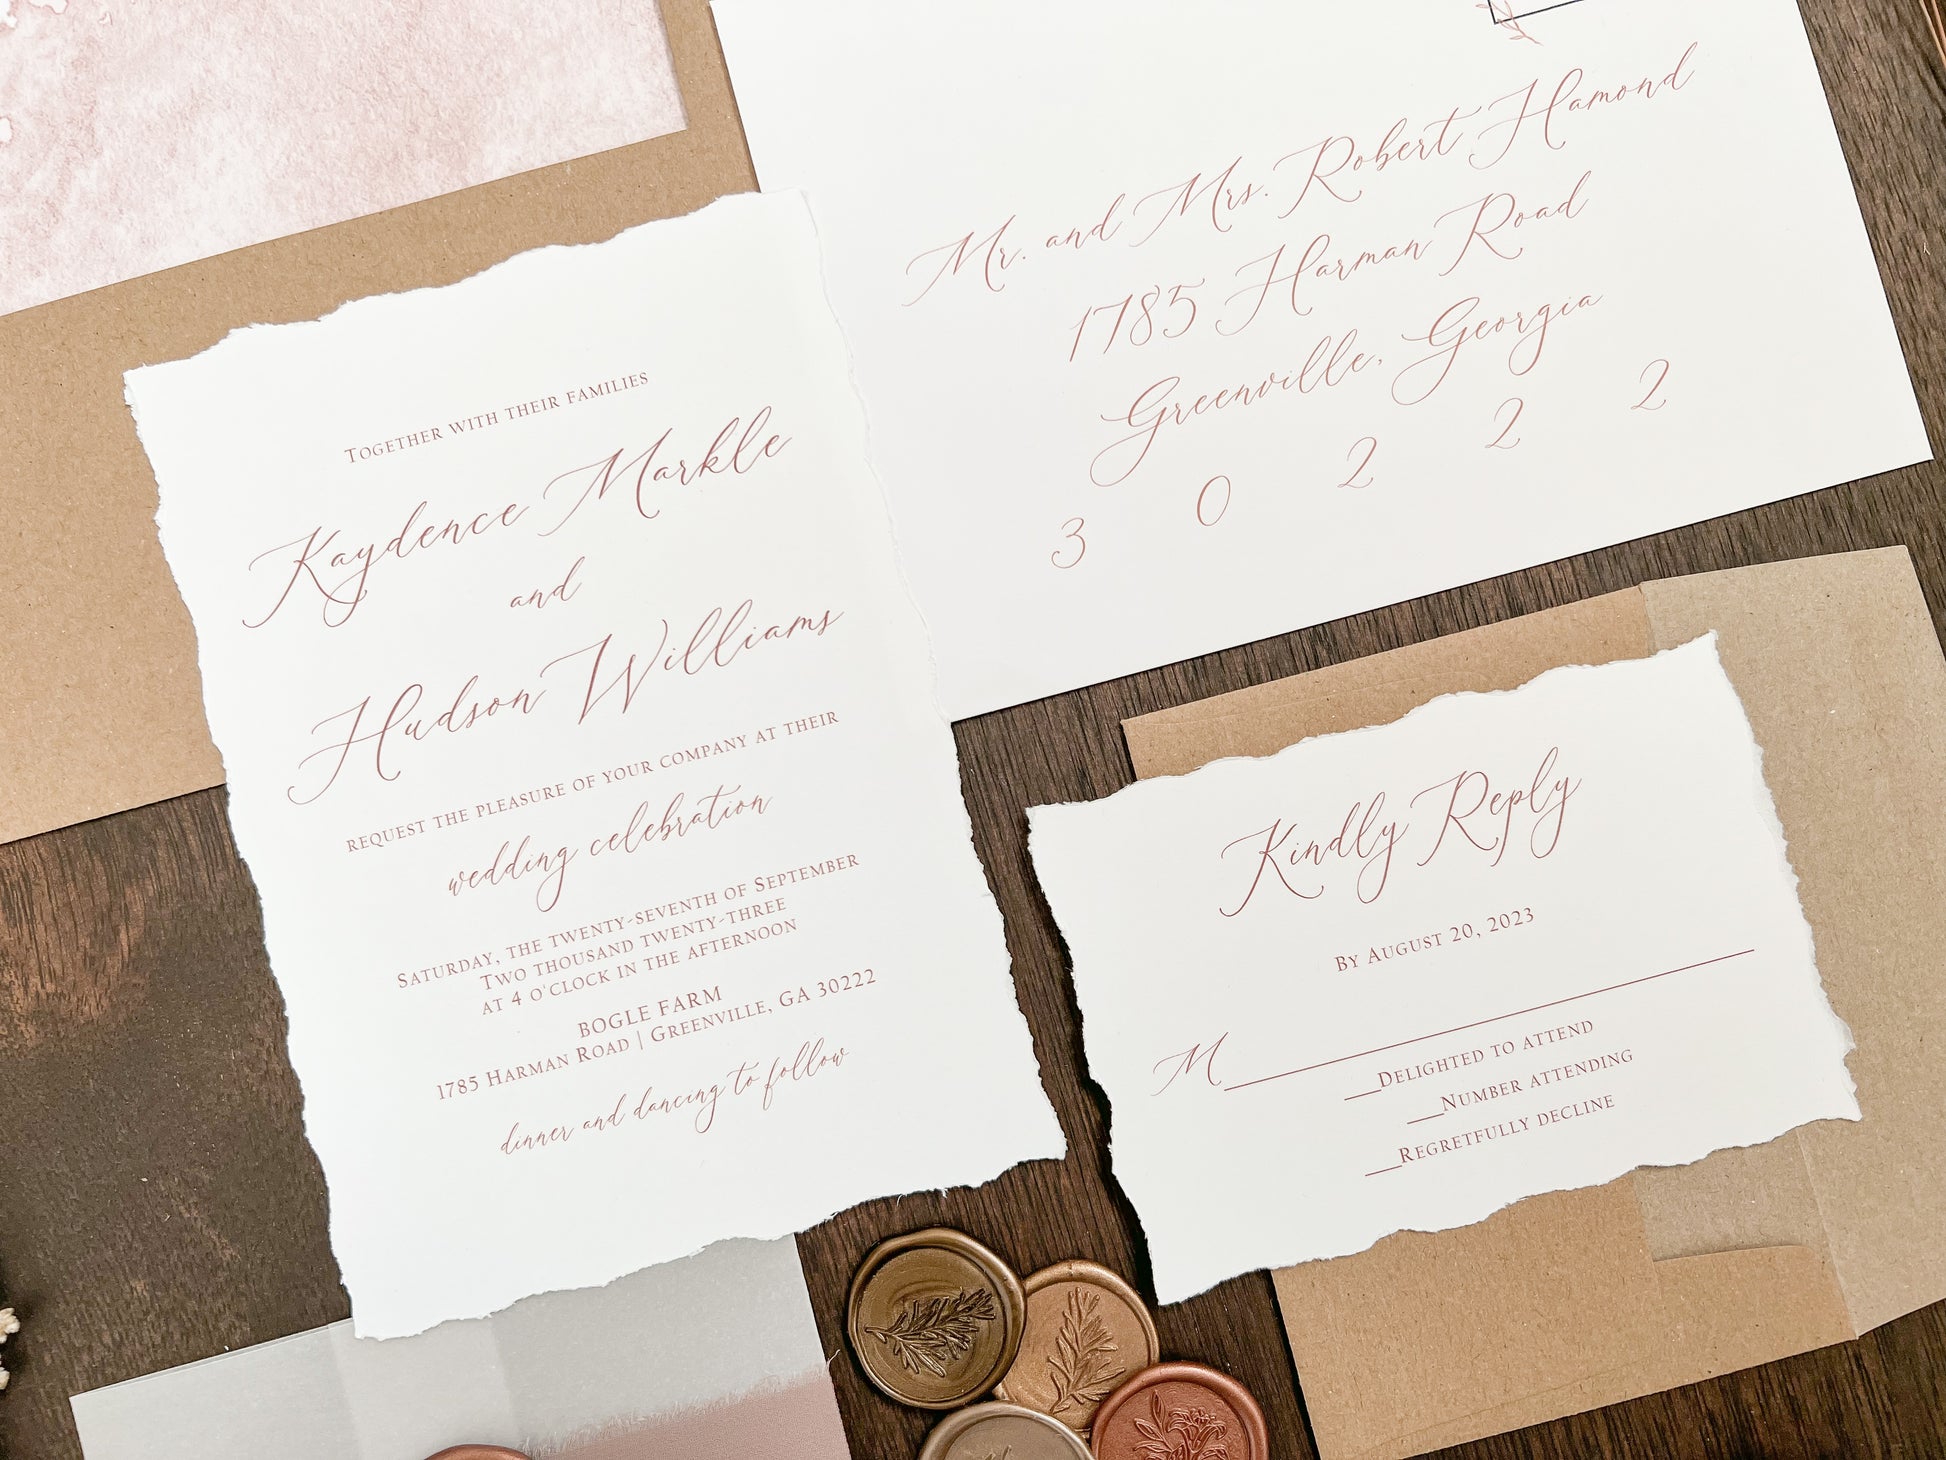 Together with their families
Kaydence Markle
and
Hudson Williams
request the pleasure of your company at their
wedding celebration
Saturday, the twenty-seventh of September
Two thousand twenty-three
at 4 o'clock in the afternoon
BOGLE FARM
1785 Harman Road | Greenville, GA 30222
dinner and dancing to follow
Mr. and Mrs. Robert Hamond
1785 Harman Road
Greenville, Georgia
3 0 2 2 2
Kindly Reply
By August 20, 2023
M
__Delighted to attend
__Number attending
__Regretfully decline